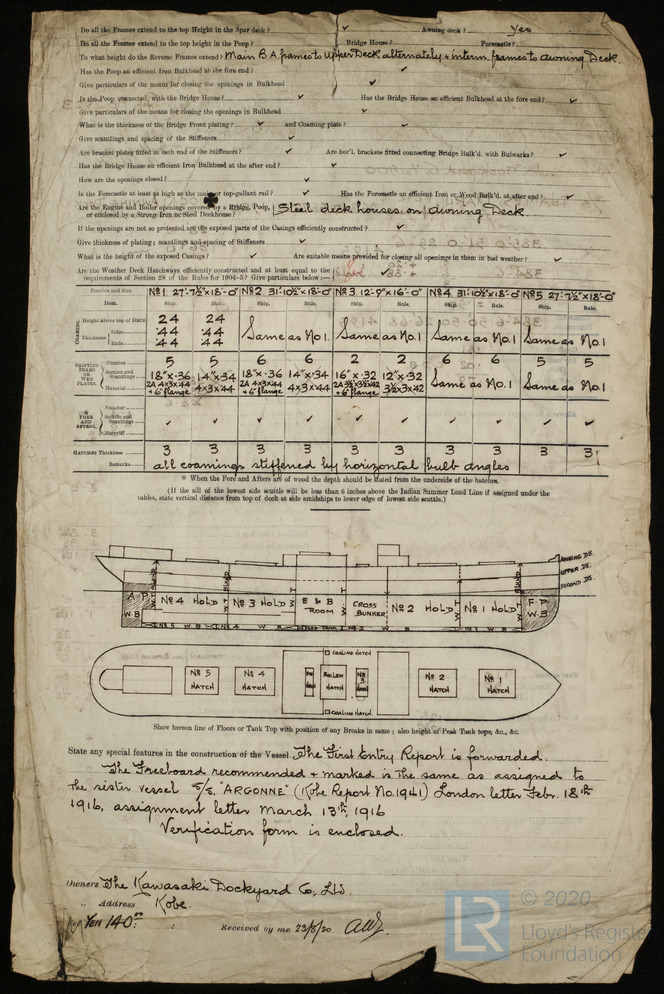 Do all the Frames extend to the top Height in the Spar deck? ✓ Awning deck? Yes
Do all the Frames extend to the top height in the Poop? Bridge House? Forecastle?
To what height do the Reverse Frames extend? Main B A frames to Upper Deck alternately + interm. frames to awning Deck.
Has the Poop an efficient Iron Bulkhead at the fore end? ✓
Give particulars of the means for closing the openings in Bulkhead ✓
Is the Poop connected with the Bridge House? ✓ Has the Bridge House an efficient Bulkhead at the fore end? ✓
Give particulars of the means for closing the openings in Bulkhead ✓
What is the thickness of the Bridge Front plating? ✓ and Coaming plate? ✓
Give scantlings and spacing of the Stiffeners ✓
Are bracket plates fitted at each end of the Stiffeners? ✓ Are hor'l. brackets fitted connecting Bridge Bulk'd. with Bulwarks? ✓
Has the Bridge House an efficient Iron Bulkhead at the after end? ✓
How are the openings closed? ✓
Is the Forecastle at least as high as the main or top-gallant rail? ✓ Has the Forecastle an efficient Iron or Wood Bulk'd. at after end? ✓
Are the Engine and Boiler openings covered by a Bridge, Poop,
or enclosed by a Strong Iron or Steel Deckhouse? Steel deck houses on awning Deck.
If the openings are not so protected are the exposed parts of the Casings efficiently constructed? ✓
Give thickness of plating; scantlings and spacing of Stiffeners ✓
What is the height of the exposed Casings? ✓ Are suitable means provided for closing all openings in them in bad weather? ✓
Are the Weather Deck Hatchways efficiently constructed and at least equal to the
requirements of Section 28 of the Rules for 1904-5? Give particulars below:—
Position and Size No 1 27'-7½"×18'-0" No 2 31'-10½"×18'-0" No 3 12'-9"×16'-0" No 4 31'-10½"×18'-0" No 5 27'-7½"×18'-0"
Item. Ship. Rule. Ship. Rule. Ship. Rule. Ship. Rule. Ship. Rule.
COAMING Height above top of DECK 24 24
Thickness Sides .44 .44 Same as No.1 Same as No.1 Same as No.1 Same as No.1
Ends .44 .44
SHIFTING BEAMS OR WEB PLATES. Number 5 5 6 6 2 2 6 6 5 5
Section and Scantlings 18"×.36 14"×.34 18"×.36 14"×.34 16"×.32 12"×.32 Same as No.1 Same as No.1
Material 2A 4×3×.44 + 6" flange 4×3×.44 2A 4×3×.44 + 6" flange 4×3×.44 + 6" flange 3½×3×.42
* FORE AND AFTERS. Number
Section and Scantlings ✓ ✓ ✓ ✓ ✓ ✓ ✓ ✓ ✓ ✓
Material
HATCHES Thickness 3 3 3 3 3 3 3 3 3 3
Remarks all coamings stiffened by horizontal bulb angles
* When the Fore and Afters are of wood the depth should be stated from the underside of the hatches.
(If the sill of the lowest side scuttle will be less than 6 inches above the Indian Summer Load Line if assigned under the
tables, state vertical distance from top of deck at side amidships to lower edge of lowest side scuttle.)
AWNING DK.
UPPER DK.
SECOND DK.
A.P. W B No 4 HOLD No 3 HOLD E & B ROOM CROSS BUNKER No 2 HOLD No 1 HOLD F.P. W.B
COALING HATCH
No 5 HATCH No 4 HATCH BOILER HATCH No 3 No 2 HATCH No 1 HATCH
COALING HATCH
Show hereon line of Floors or Tank Top with position of any Breaks in same; also height of Peak Tank tops, &c., &c.
State any special features in the construction of the Vessel The First Entry Report is forwarded.
The Freeboard recommended + marked is the same as assigned to
the sister vessel S/S. "ARGONNE" (Kobe Report No.1941) London letter Febr. 18th
1916, assignment letter March 13th, 1916
Verification form is enclosed.
Owners The Kawasaki Dockyard Co, Ltd.
„ Address Kobe.
Yen 140.00 Received by me 23/8/20
LR © 2020
Lloyd's Register
Foundation